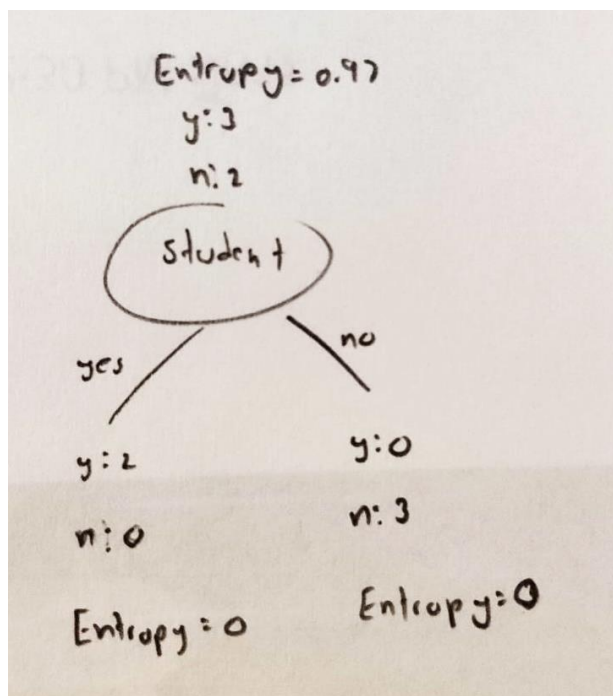 Entropy = 0.97
y: 3
n: 2
student
yes
no
y: 2
y: 0
n: 0
n: 3
Entropy = 0
Entropy = 0